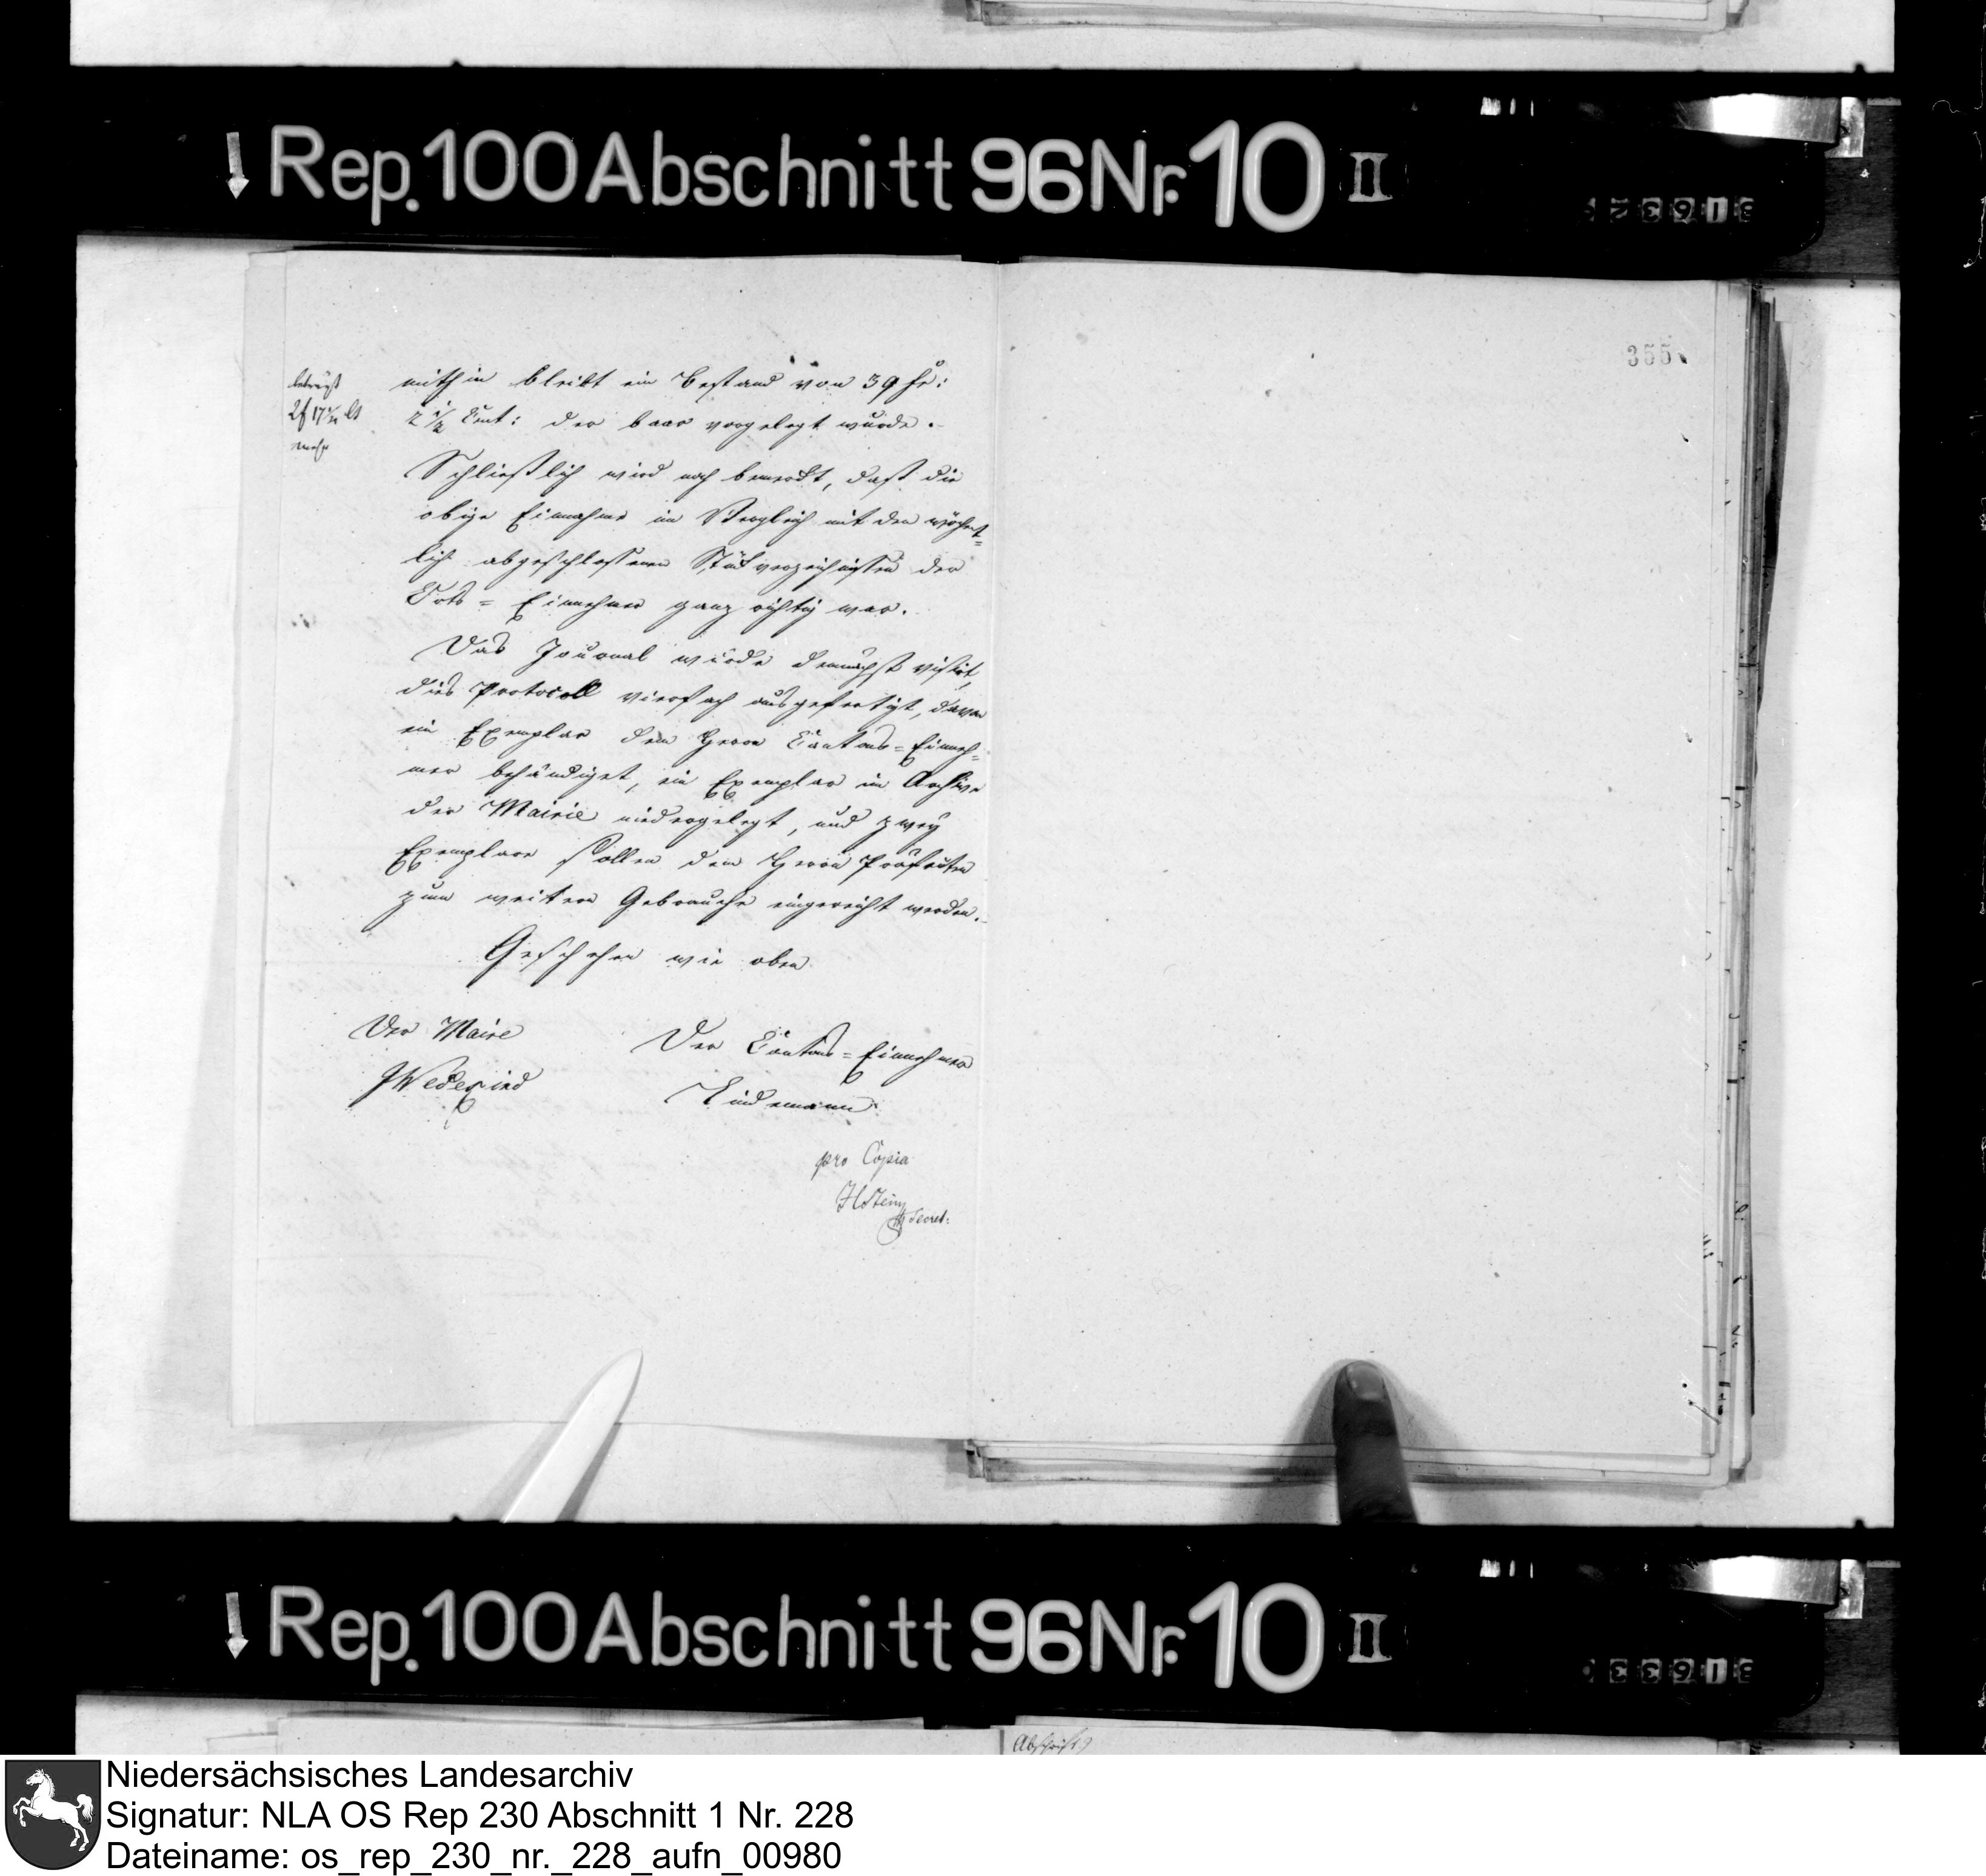 Rep. 100 Abschnitt 96 Nr. 10 II
355
beträgt
mehr
mithin bleibt ein Bestand von 39 fr:
2 1/2 Cent: der baar vorgelegt wurde.
Schließlich wird noch bemerkt, daß die
obige Einnahme im Vergleich mit den wöchent=
lich abgeschlossenen Stückverzeichnissen der
Orts=Einnehmer ganz richtig war.
Das Journal wurde demnächst visirt,
dies Protocoll vierfach ausgefertigt, davon
ein Exemplar dem Herrn Cantons=Einneh=
mer behändiget, ein Exemplar im Archive
der Mairie niedergelegt, und zwey
Exemplare sollen dem Herrn Präfecten
zum weitern Gebrauche eingereicht werden.
Geschehen wie oben
Der Maire
Der Cantons=Einnehmer
Lindemann
pro Copia
Secret:
Rep. 100 Abschnitt 96 Nr. 10 II
Abschrift
Niedersächsisches Landesarchiv
Signatur: NLA OS Rep 230 Abschnitt 1 Nr. 228
Dateiname: os_rep_230_nr._228_aufn_00980